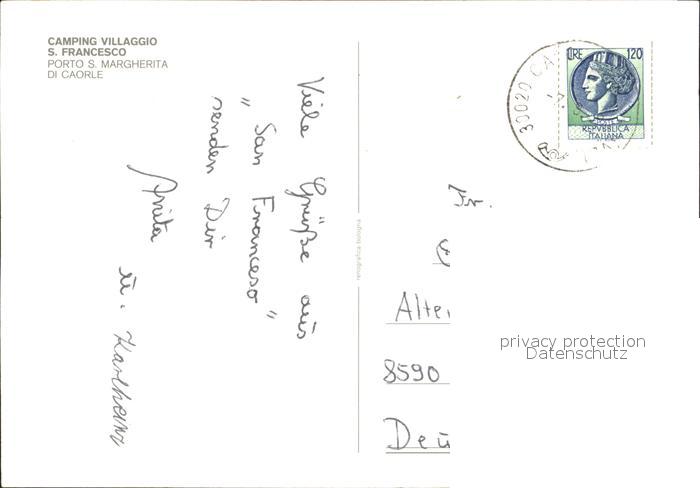 CAMPING VILLAGGIO
S. FRANCESCO
PORTO S. MARGHERITA
DI CAORLE
Viele Grüße aus
"San Franceso"
senden Dir
Anita
u. Karlheinz
LIRE 120
POSTE
REPVBBLICA
ITALIANA
30020 CA
Fr.
Alter
8590
Deu
privacy protection
Datenschutz